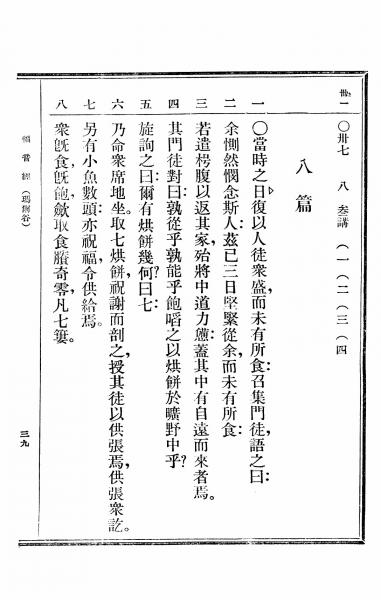 卅一
〇卅七 八 叄講 (一)(二)(三)(四
八篇
一 〇當時之日,復以人徒衆盛,而未有所食:召集門徒,語之曰:
二 余惻然憫念斯人:玆已三日堅緊從余,而未有所食:
三 若遣枵腹以返其家,殆將中道力憊:蓋其中有自遠而來者焉。
四 其門徒對曰:孰從乎,孰能乎,飽嚪之以烘餅於曠野中乎?
五 旋詢之曰:爾有烘餅幾何?曰:七
六 乃命衆席地坐。取七烘餅,祝謝而剖之,授其徒以供張焉,供張衆訖。
七 另有小魚數頭:亦祝福,令供給焉。
八 衆旣食旣飽,斂取食賸奇零,凡七簍。
福音經(瑪爾谷)
三九